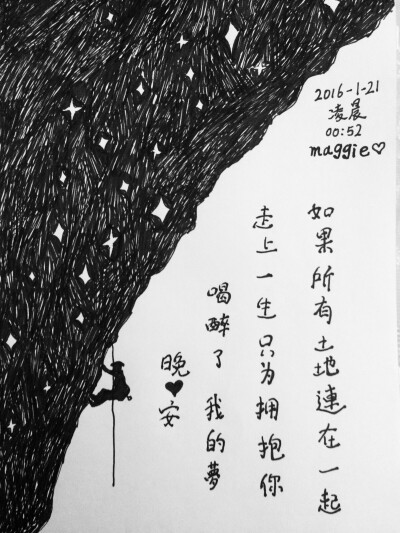 2016-1-21
凌晨
00:52
maggie♡
如果所有土地連在一起
走上一生只为拥抱你
喝醉了我的夢
晚♥安